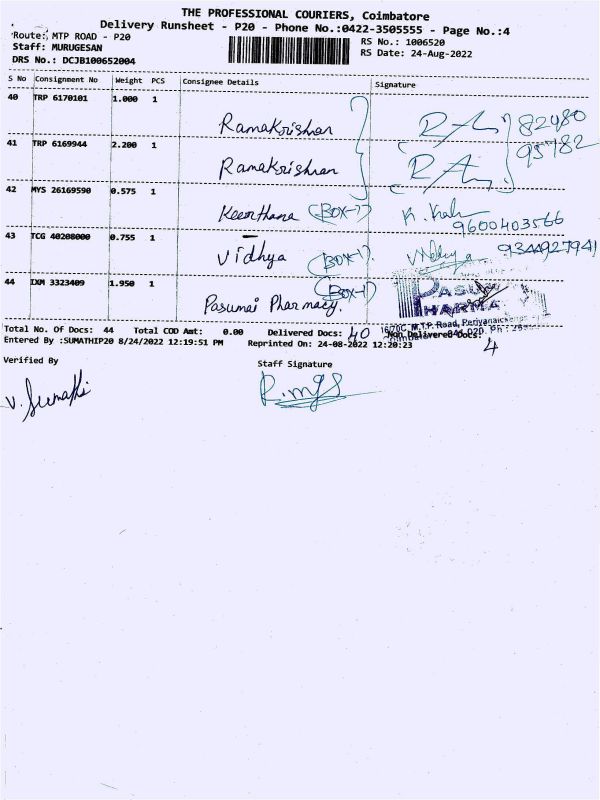 THE PROFESSIONAL COURIERS, Coimbatore
Delivery Runsheet - P20 - Phone No.:0422-3505555 - Page No.:4
Route: MTP ROAD - P20
RS No.: 1006520
Staff: MURUGESAN
RS Date: 24-Aug-2022
DRS No.: DCJB100652004
S No Consignment No Weight PCS Consignee Details Signature
40 TRP 6170101 1.000 1
Ramakrishnan 82480
41 TRP 6169944 2.200 1 95782
Ramakrishnan
42 MYS 26169590 0.575 1
Keerthana (BOX-1) K. Kala
9600403566
43 TCG 40208000 0.755 1
Vidhya (BOX-1) Vidhya 9344927941
44 IXM 3323409 1.950 1 (Box-1)
Pasumai Pharmacy.
PHARMA
1670C, M.T.P. Road, Periyanaicken
Total No. Of Docs: 44 Total COD Amt: 0.00 Delivered Docs: 40 Non Delivered Docs: 4
Entered By :SUMATHIP20 8/24/2022 12:19:51 PM Reprinted On: 24-08-2022 12:20:23
Verified By Staff Signature
V. Sumathi R.mgs